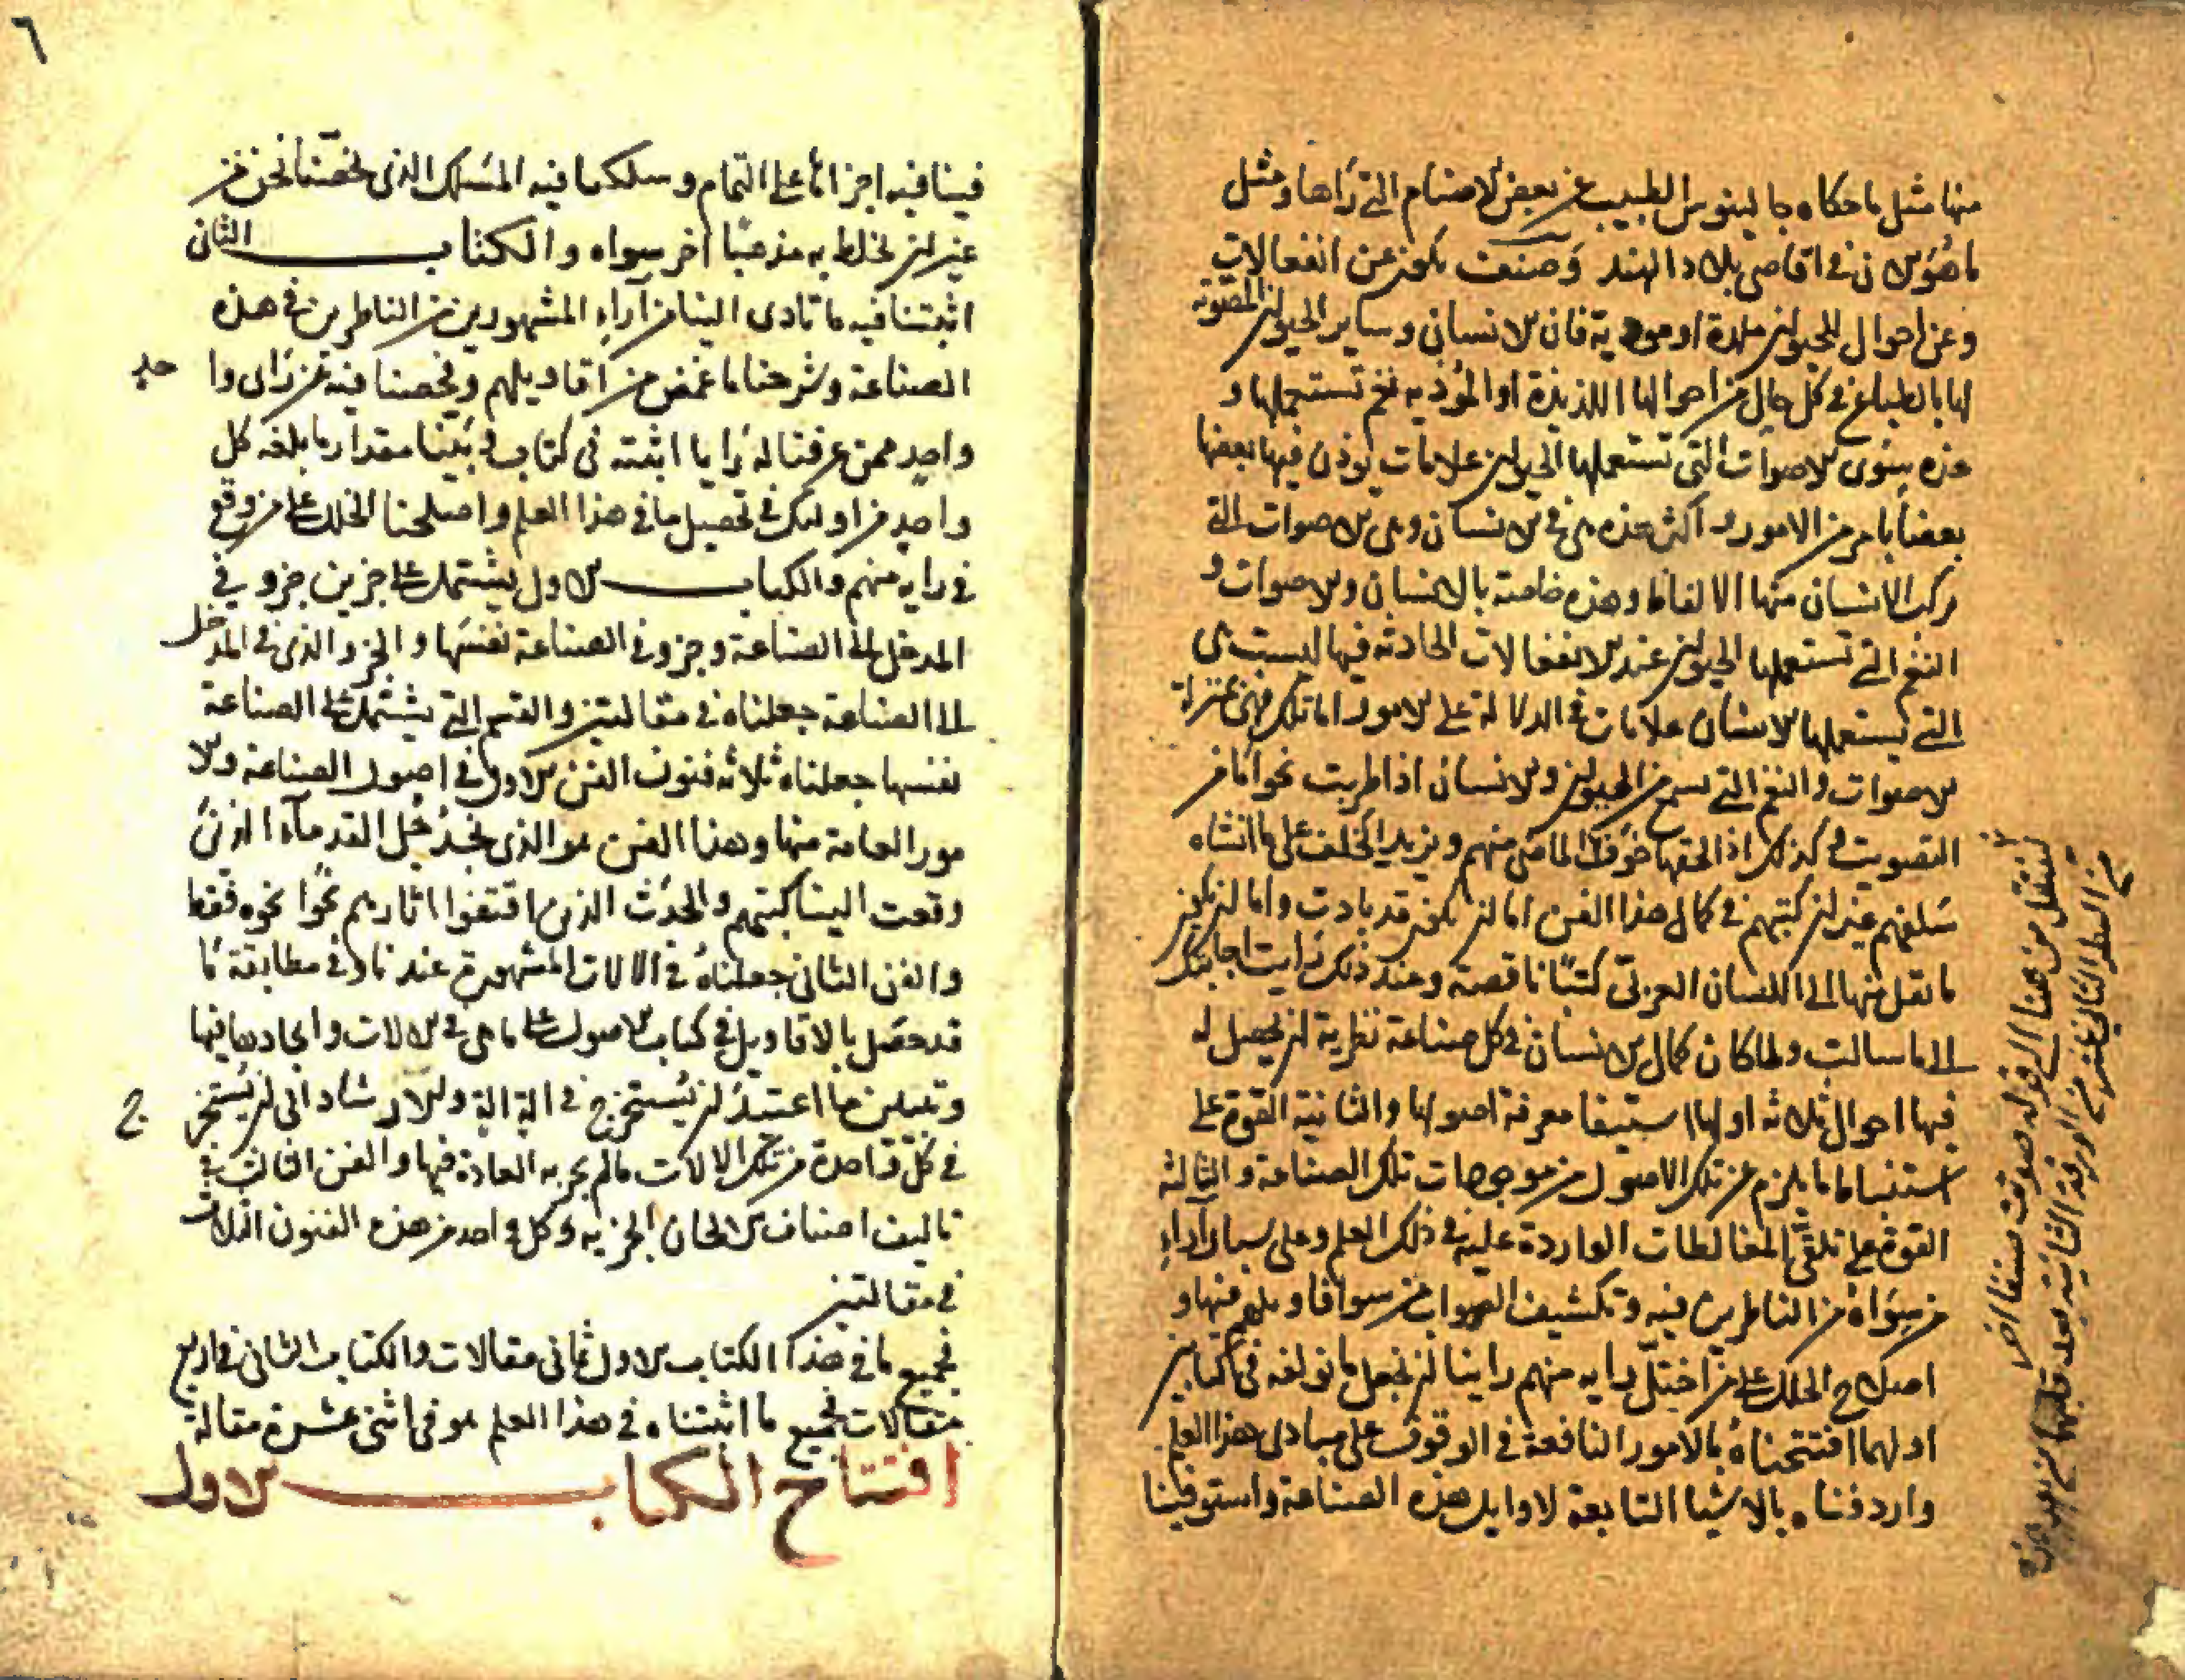 منها مثل ما حكاه جالينوس الطبيب عن بعض الاصنام التي رآها ومثل
ما هو الان في اقاصي بلاد الهند وصنف يكون عن انفعالات
وعن احوال للحيوان ملذة او موذية فان الانسان وساير الحيوان المصوتة
لها بالطباع في كل حال من احوالها اللذيذة او المؤذيه نغم تستعملها و
هذه سوى الاصوات التي تستعملها الحيوان علامات يوذن فيها بعضها
بعضا بامر من الامور و اكثر هذه هي في الانسان وهي الاصوات التي
ركب الانسان منها الالفاظ وهذه خاصة بالانسان والاصوات و
النغم التي تستعملها الحيوان عند الانفعالات الحادثه فيها ليست هي
التي يستعملها الانسان علامات في الدلالة على الامور اما تلك فهي بمنزلة
الاصوات والنغم التي تسمع من الحيوان والانسان اذا طربت نحوا ما من
التصويت و كذلك اذا لحقها خوف الماضي منهم ويزيد الخلف على ما انشاه
سلفهم غير ان كتبهم في كمال هذا الفن اما ان تكون قد بادت واما ان تكون
ما نقل منها الى اللسان العربي كتبا ناقصة وعند ذلك رايت اجابتك
الى ما سالت ولما كان كمال الانسان في كل صناعة نظرية ان يحصل له
فيها احوال ثلاثه اولها استيفا معرفة اصولها والثانية القوة على
استنباط ما يلزم عن تلك الاصول من موجودات تلك الصناعة والثالثة
القوة على تلقي المغالطات الواردة عليه في ذلك العلم وعلى سبار آراء
من سواه من الناظرين فيه وتكشيف الصواب من سو اقاويلهم فيها و
اصلاح الخلل على من اختل رايه منهم راينا ان نجعل ما نولفه في كتابين
اولهما افتتحناه بالامور النافعة في الوقوف على مبادى هذا العلم
واردفناه بالاشيا التابعة لاوايل هذه الصناعة واستوفينا
لننتقل من هنا الى قوله صوتت صنفا اخر
من السطر الثاني عشر من الورقة الثانية
٦
فينا فيه اجزائها على التمام وسلكنا فيه المسلك الذي يخصنا نحن من
غير ان نخلط به مذهبا آخر سواه والكتاب الثاني
اثبتنا فيه ما تادى الينا من آراء المشهورين من الناظرين في هذه
الصناعة وشرحنا ما غمض من اقاويلهم وفحصنا فيه عن راى وا حد
واحد ممن عرفنا له رايا اثبته في كتاب و بينا مقدار ما بلغه كل
واحد من اولئك في تحصيل ما في هذا العلم واصلحنا الخلل على من وقع
في رايه منهم والكتاب الاول يشتمل على جزين جزو في
المدخل الى الصناعة وجزو في الصناعة نفسها والجزو الذي في المدخل
الى الصناعة جعلناه في مقالتين والقسم التي يشتمل على الصناعة
نفسها جعلناه ثلاثه فنون الفن الاول في اصول الصناعة والا
مور العامة منها وهذا الفن هو الذي نجد جل القدماء الذين
وقعت الينا كتبهم والحدث الذين اقتفوا اثارهم نحوا نحوه فقط
والفن الثاني جعلناه في الالات المشهورة عندنا و في مطابقة ما
قد حصل بالاقاويل في كتاب الاصول على ما هي في الالات وايجادها فيها
وتبيين ما اعتيد ان يستخرج في الة الة والارشاد الى ان يستخر ج
في كل واحدة من تلك الالات ما لم يجر به العادة فيها والفن الثالث في
تاليف اصناف الالحان الجزيه وكل واحد من هذه الفنون الثلاث
في مقالتين
فجميع ما في هذا الكتاب الاول ثماني مقالات والكتاب الثاني في اربع
مقالات فجميع ما اثبتناه في هذا العلم هو في اثنى عشرة مقالة
افتتاح الكتاب الاول